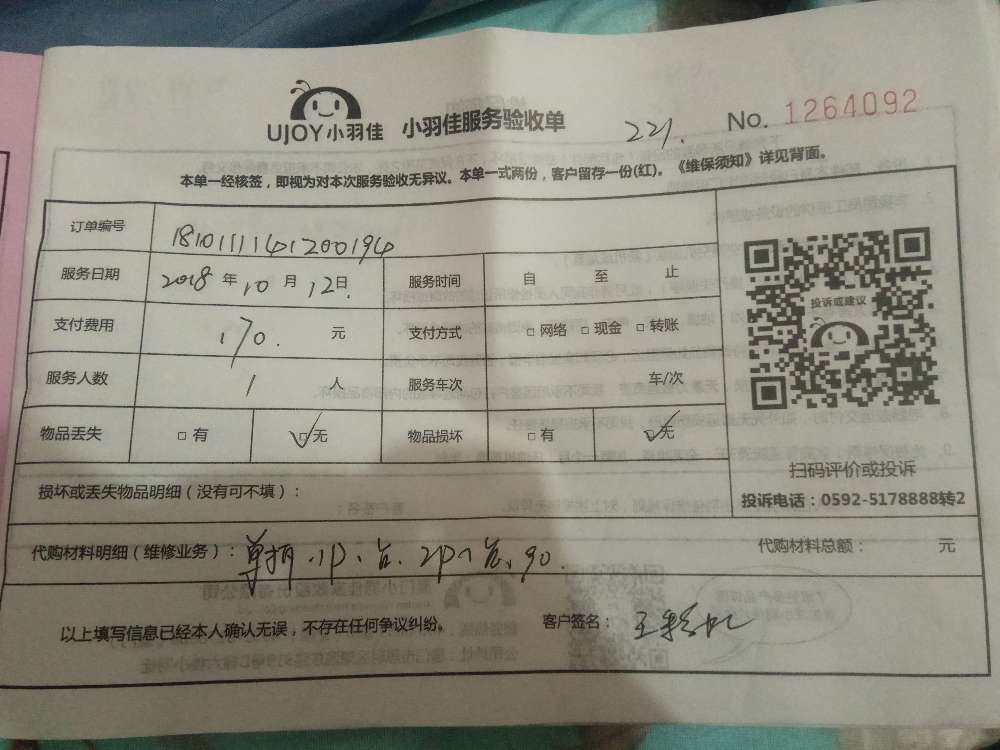 UJOY小羽佳 小羽佳服务验收单 221. No. 1264092
本单一经核签，即视为对本次服务验收无异议。本单一式两份，客户留存一份(红)。《维保须知》详见背面。
订单编号 181011141200194
服务日期 2018 年 10 月 12 日 服务时间 自 至 止
投诉或建议
支付费用 170. 元 支付方式 □ 网络 □ 现金 □ 转账
服务人数 1 人 服务车次 车/次
物品丢失 □ 有 ☑ 无 物品损坏 □ 有 ☑ 无
扫码评价或投诉
投诉电话：0592-5178888转2
损坏或丢失物品明细（没有可不填）：
代购材料明细（维修业务）： 1P 台. 2P 台. 90. 代购材料总额： 元
以上填写信息已经本人确认无误，不存在任何争议纠纷。 客户签名：